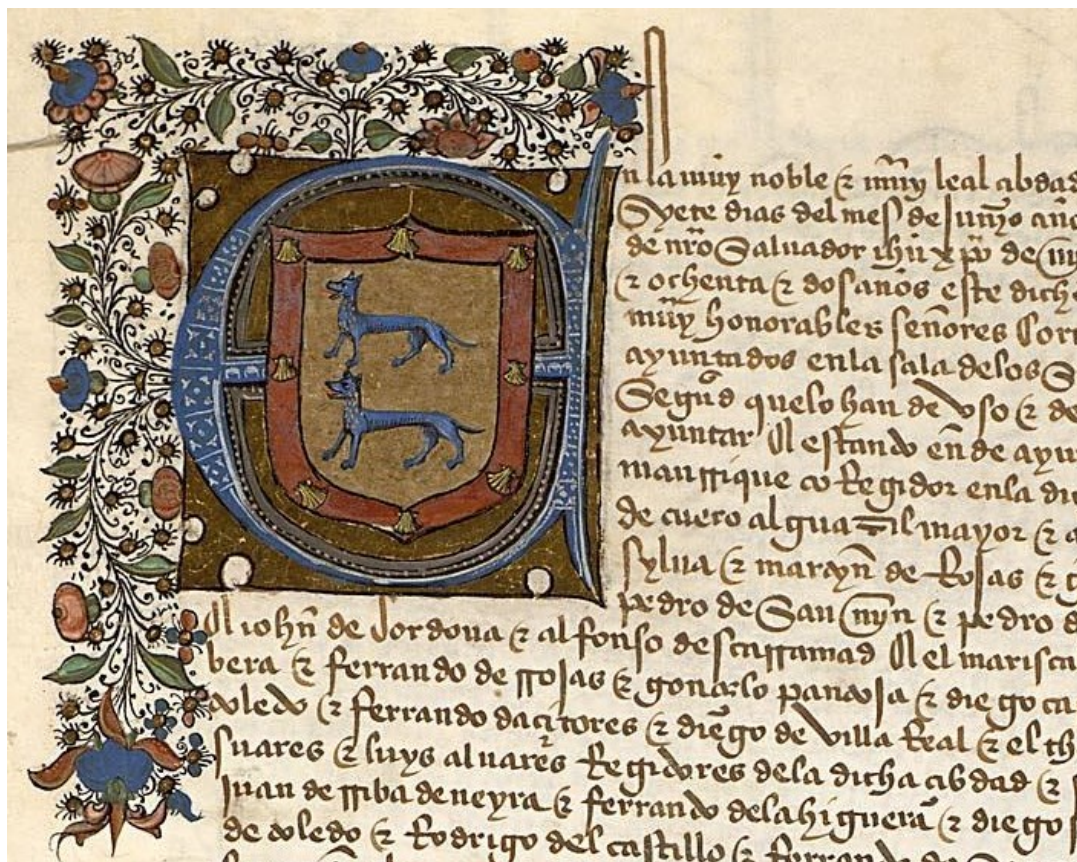 En la muy noble & muy leal cibdad
Syete dias del mes de junyo año
de nr̃o Saluador ihũ xp̃o de mi
& ochenta & dos años este dicho
muy honorables señores Corr
ayuntados en la sala de los S
Segũd que lo han de vso & de
ayuntar estando ende ayu
manrrique corregidor en la di
de cuero alguazil mayor & a
sylua & martyn de Rojas & g
pedro de San myñ & pedro d
johñ de Cordoua & alfonso descarramad el marisca
bera & ferrando de rrojas & gonçalo pantoja & diego ca
toledo & ferrando dacitores & diego de villa Real & el th
suares & luys aluares Regidores dela dicha cibdad &
Juan de rriba de neyra & ferrando delahiguera & diego
de toledo & Rodrigo del castillo & ferrando de